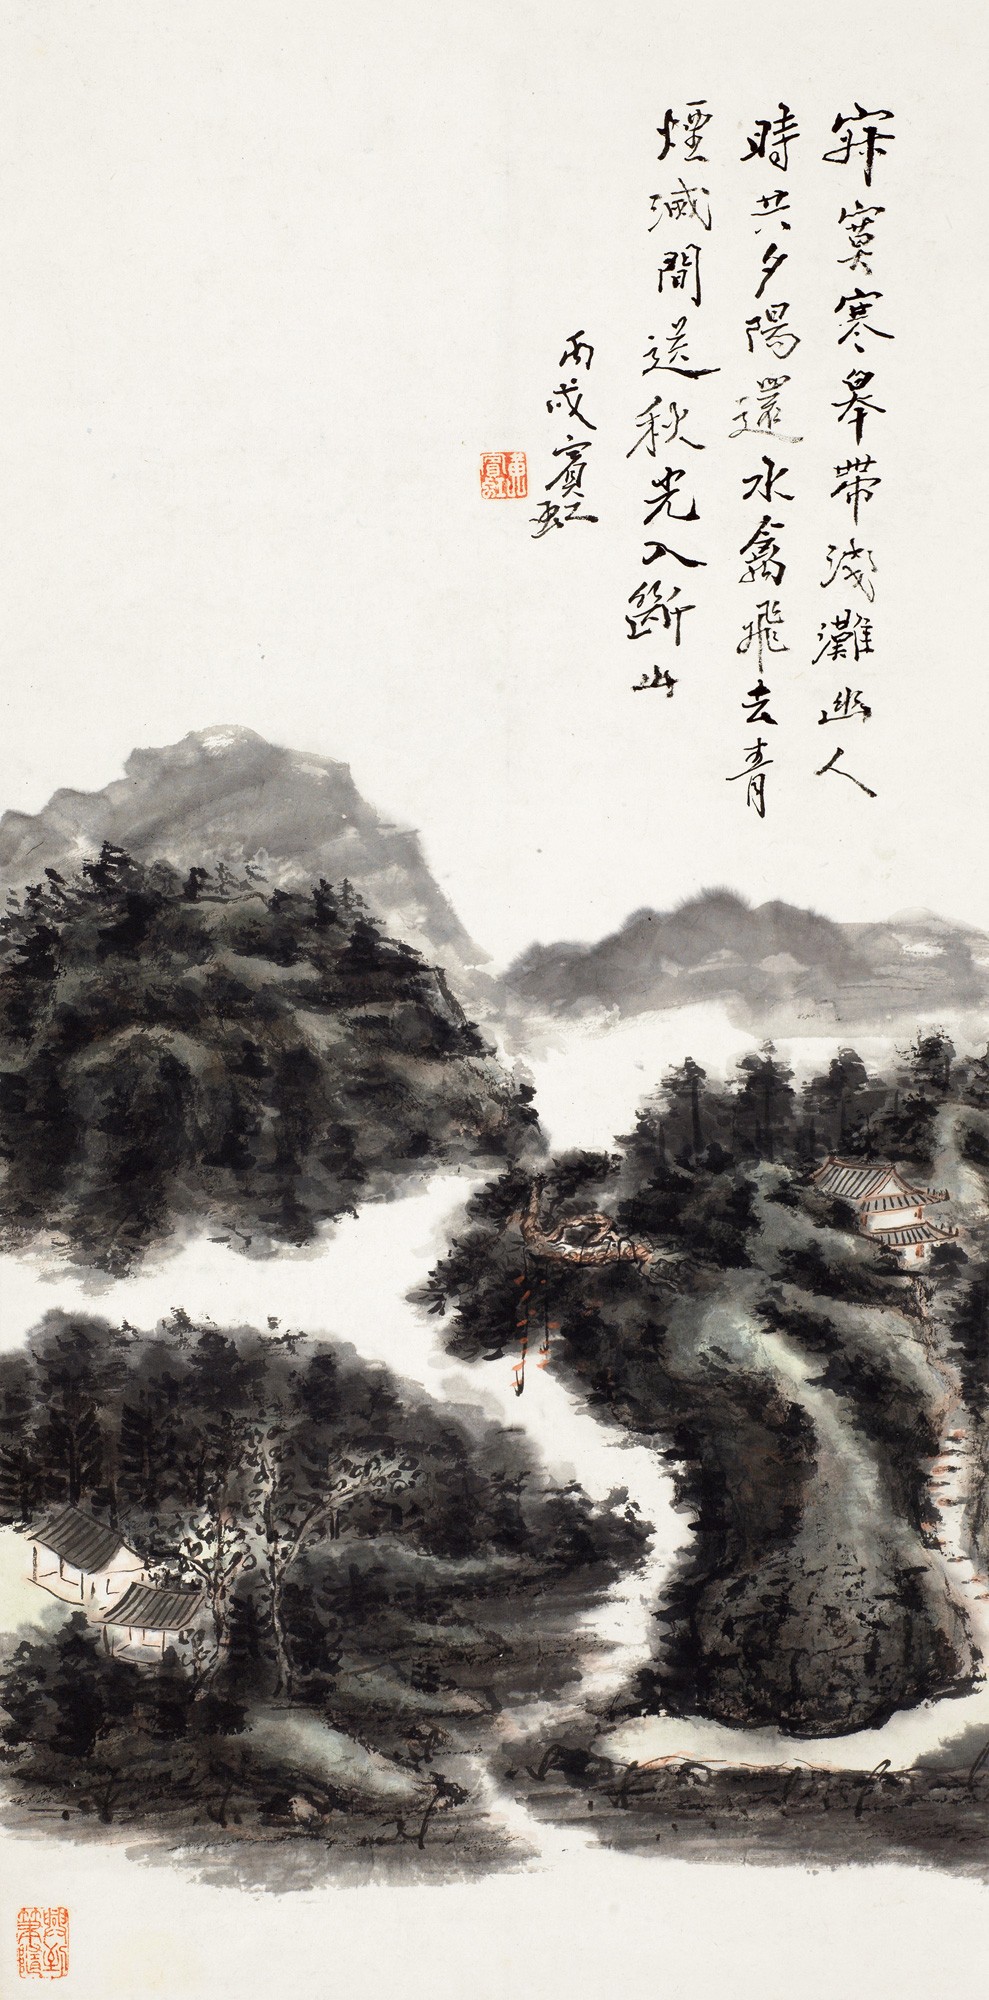 寂寞寒皋帶淺灘幽人
時共夕陽還水禽飛去青
煙滅間送秋光入斷山
丙戌賓虹
黃賓虹
興到筆隨